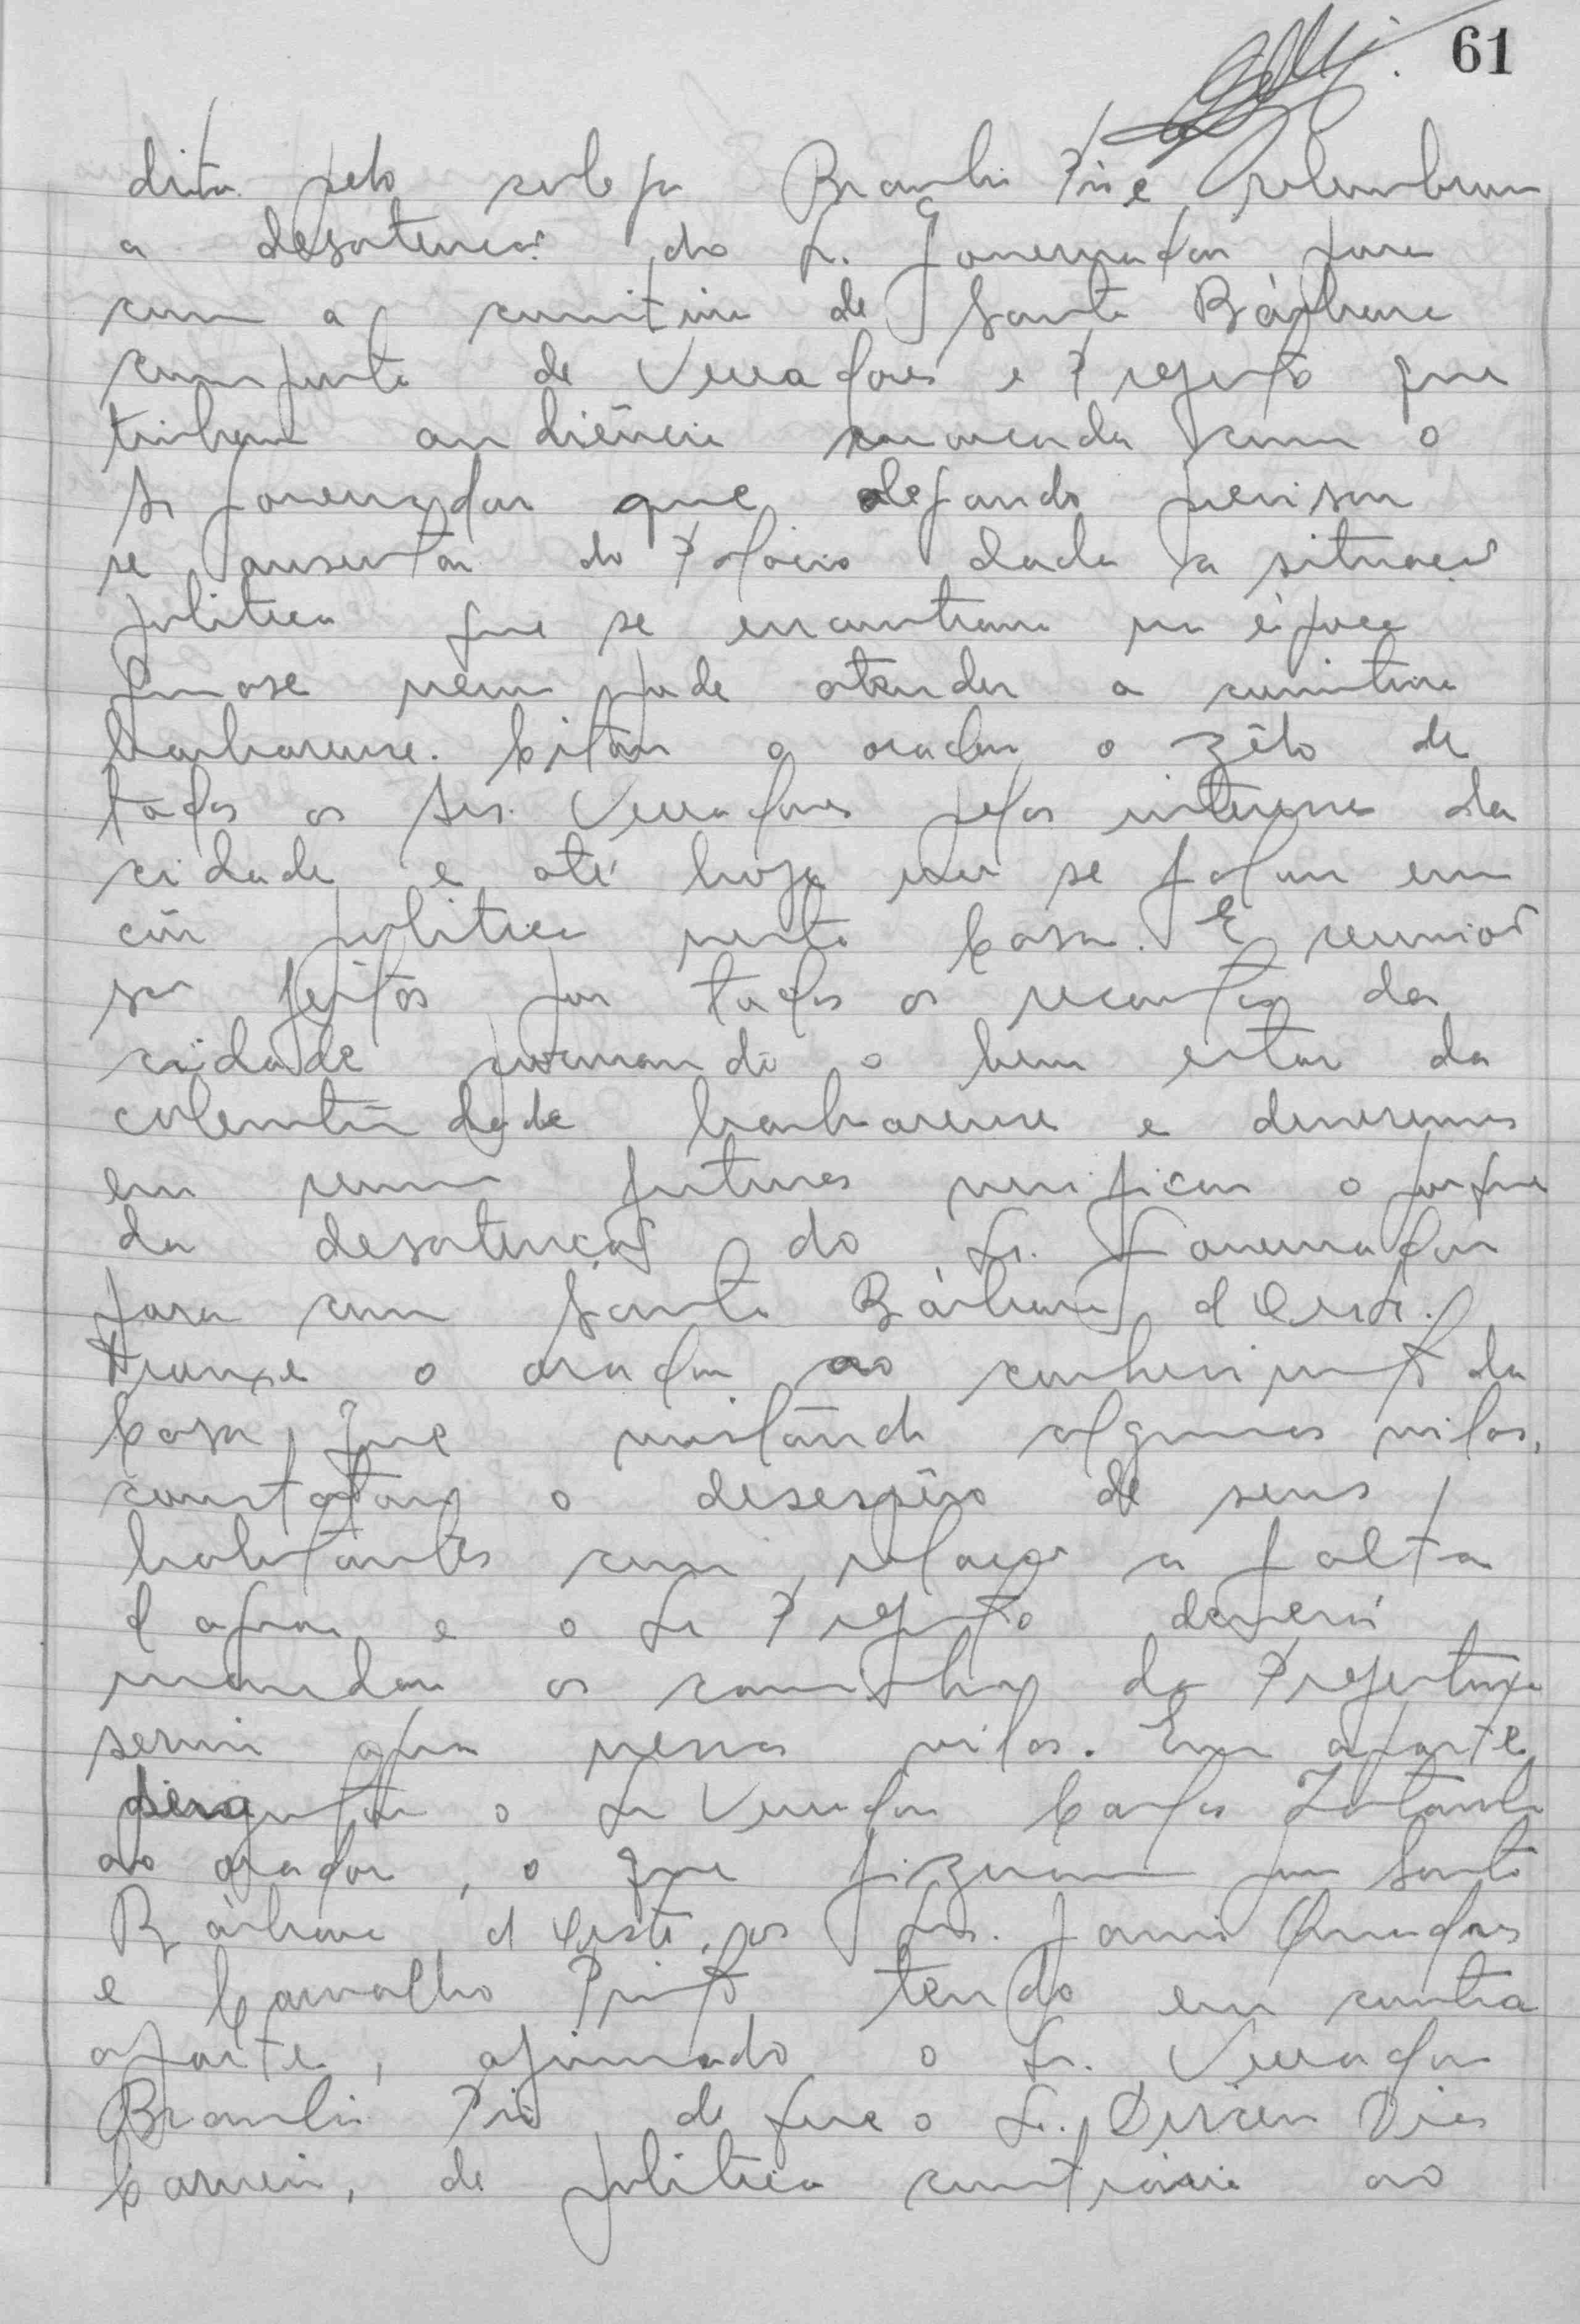 61
dita pelo colega Braulio Pio e relembrou
a desatenção do Sr. Governador para
com a comitiva de Santa Bárbara
composta de Vereadores e Prefeito que
tinham audiência marcada com o
Sr Governador que alegando precisar
se ausentar do Palácio dada a situação
politica que se encontrava na época
quase nem pode atender a comitiva
barbarense. Citou o orador o zêlo de
todos os Srs. Vereadores pelos interesses da
cidade e até hoje não se falou em
côr politica nesta Casa. E reuniões
são feitas por todos os recantos da
cidade procurando o bem estar da
coletividade barbarense e deveremos
em reuniões futuras verificar o porque
da desatenção do Sr. Governador
para com Santa Bárbara d'Oeste.
Trouxe o orador ao conhecimento da
Casa que visitando algumas vilas,
constatou o desespêro de seus
habitantes com relação a falta
d'agua e o Sr Prefeito deverá
mandar os caminhões da Prefeitura
servir agua nessas vilas. Em aparte
perguntou o Sr Vereador Carlos
ao orador, o que fizeram por Santa
Bárbara d'Oeste, os Srs. Janio Quadros
e Carvalho Pinto tendo em contra
aparte, afirmado o Sr. Vereador
Braulio Pio de que o Sr. Dirceu Dias
Carneiro, de politica contrária ao